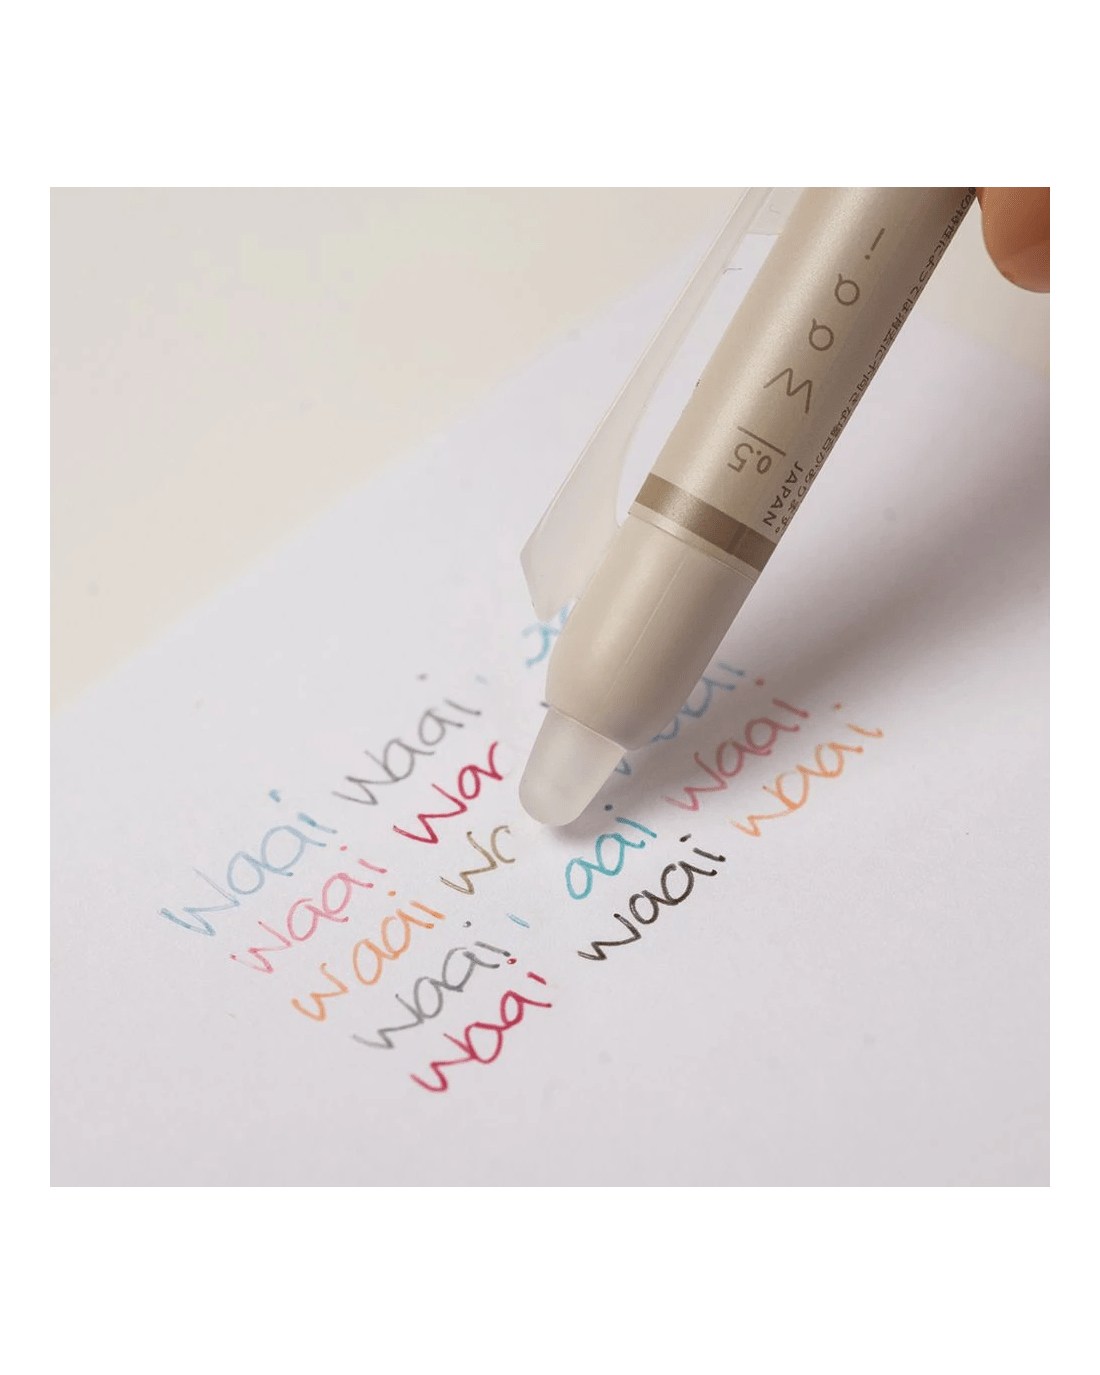 waai
0.5
JAPAN
waai waai
waai wa
waai w
waai aai waai
waai waai waai